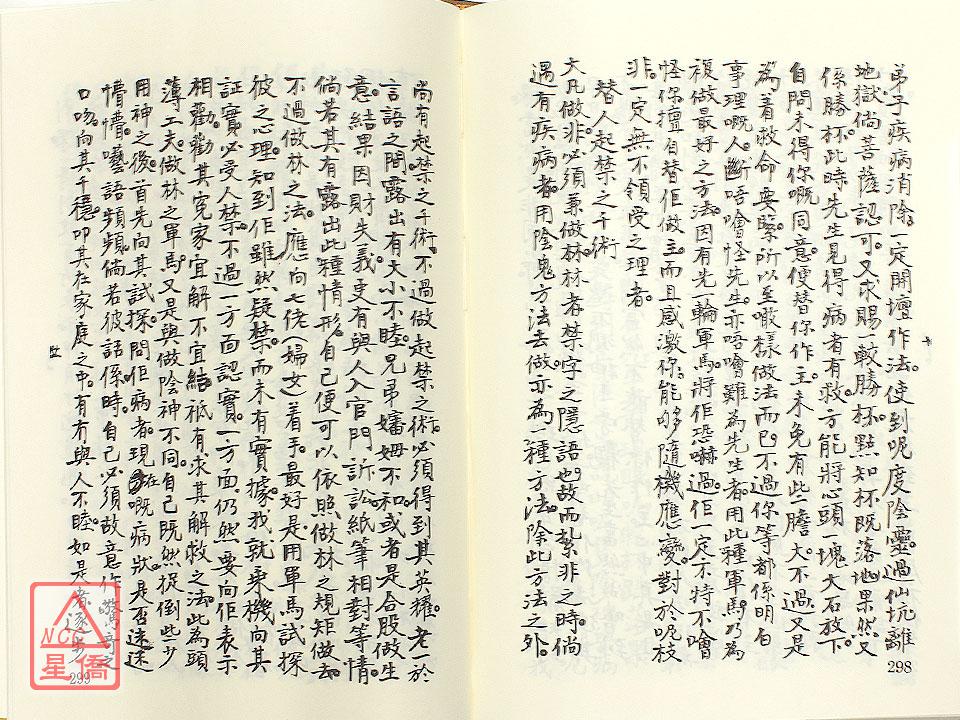 弟子疾病消除。一定開壇作法。使到呢度陰靈。過仙坑離
地獄。倘菩薩認可。又求賜一較勝杯。點知杯既落地。果然又
係勝杯。此時先生見得病者有救。方能將心頭一塊大石放下。
自問未得你嘅同意。便替你作主。未免有些膽大。不過又是
為着救命要緊。所以至噉樣做法而已。不過你等都係明白
事理嘅人。斷唔會怪先生。亦唔會難為先生者。用此種軍馬。乃為
複做最好之方法。因有先一輪軍馬。將佢恐嚇過。佢一定不特不會
怪你擅自替佢做主。而且感激你。能够隨機應變。對於呢枝
非。一定無不領受之理者。
替人起禁之千術
大凡做非。必須兼做林。林者禁字之隱語也。故而紮非之時。倘
遇有疾病者。用陰鬼方法去做。亦為一種方法。除此方法之外。
298
尚有起禁之千術。不過做起禁之術。必須得到其英耀。老於
言語之間。露出有大小不睦。兄弟嬸姆不和。或者是合股做生
意。結果因財失義。更有與人入官門訴訟。紙筆相對等情。
倘若其有露出此種情形。自己便可以依照做林之規矩做去。
不過做林之法。應向七佬(婦女)着手。最好是用單馬試探
彼之心理。知到佢雖然疑禁。而未有實據。我就乘機向其
証實必受人禁。不過一方面認實。一方面仍然要向佢表示
相勸。勸其冤家宜解不宜結。祇有求其解救之法。此為頭
薄工夫。做林之軍馬。又是與做陰神不同。自己既然捉倒些少
用神之後。首先向其試探。問佢病者現在嘅病狀。是否迷迷
懵懵。囈語頻頻。倘若彼話係時。自己必須故意作驚奇之
口吻。向其千穩。叩其在家庭之中。有冇與人不睦。如是者逐步
299
NCC
星僑